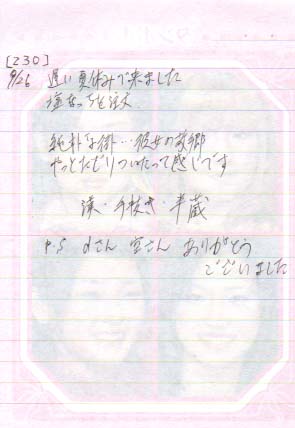 [230]
9/26 遅い夏休みで来ました
塩なっとを注文
純朴な街…彼女の故郷
やっとたどりついたって感じです
漢・手抜き・半蔵
P.S dさん 宮さん ありがとう
ございました